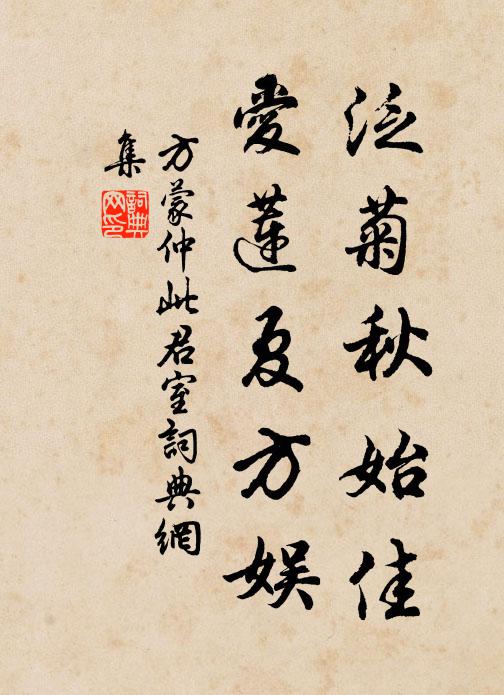 泛菊秋始佳
愛蓮夏方娛
方蒙仲此君室詞典網
集
詞典
网印